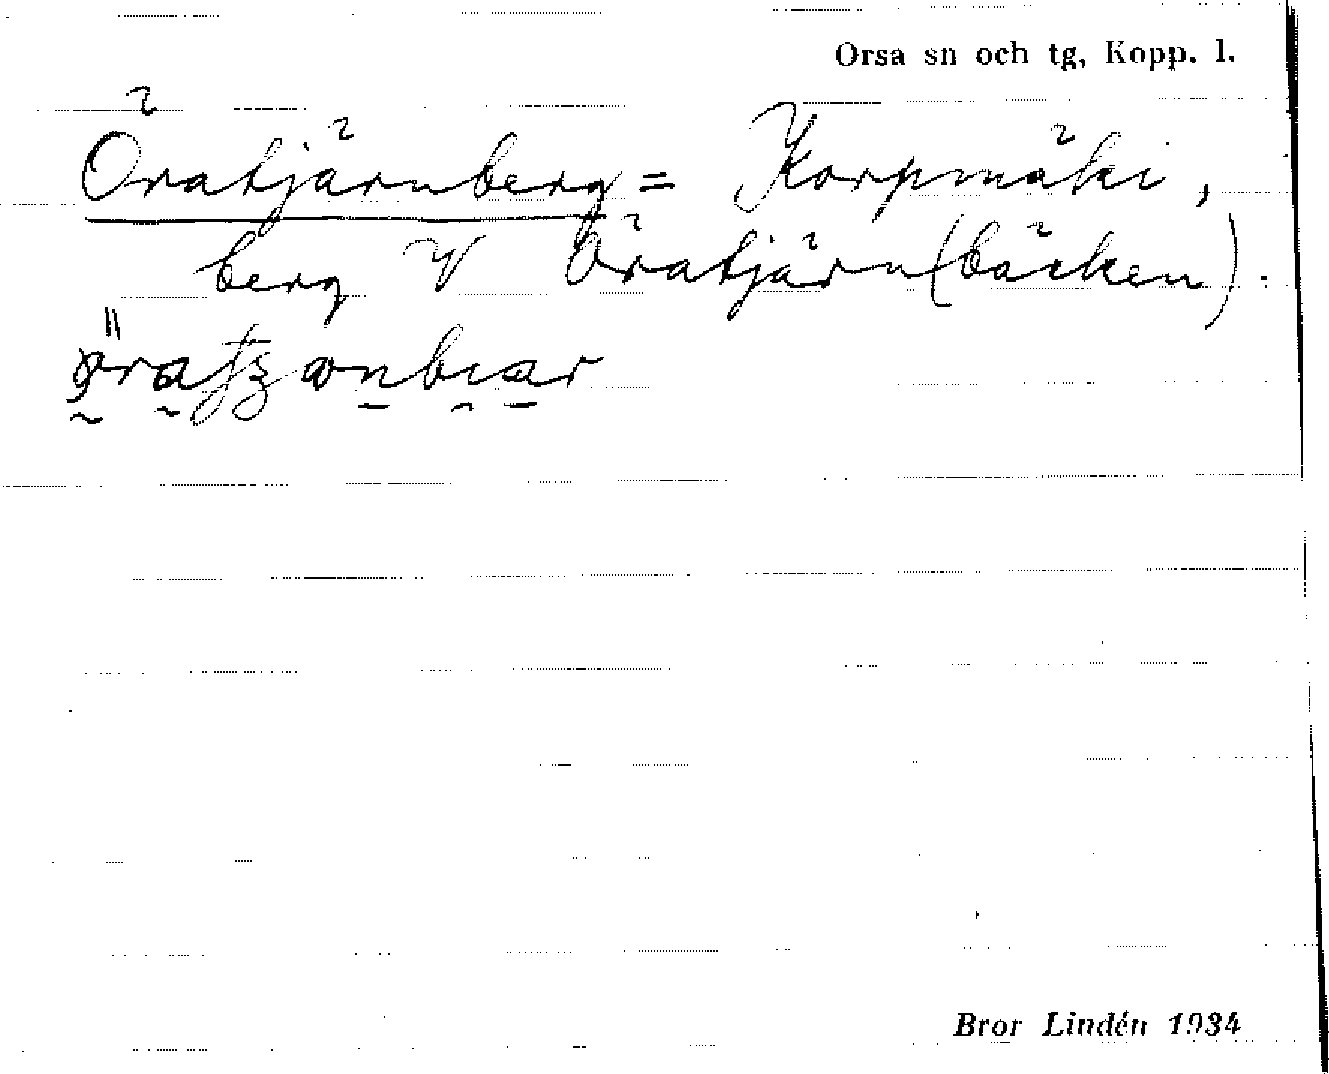 Orsa sn och tg, Kopp. l.
Öratjärnberg = Korpmäki,
berg V Öratjärn(bäcken).
Bror Lindén 1934